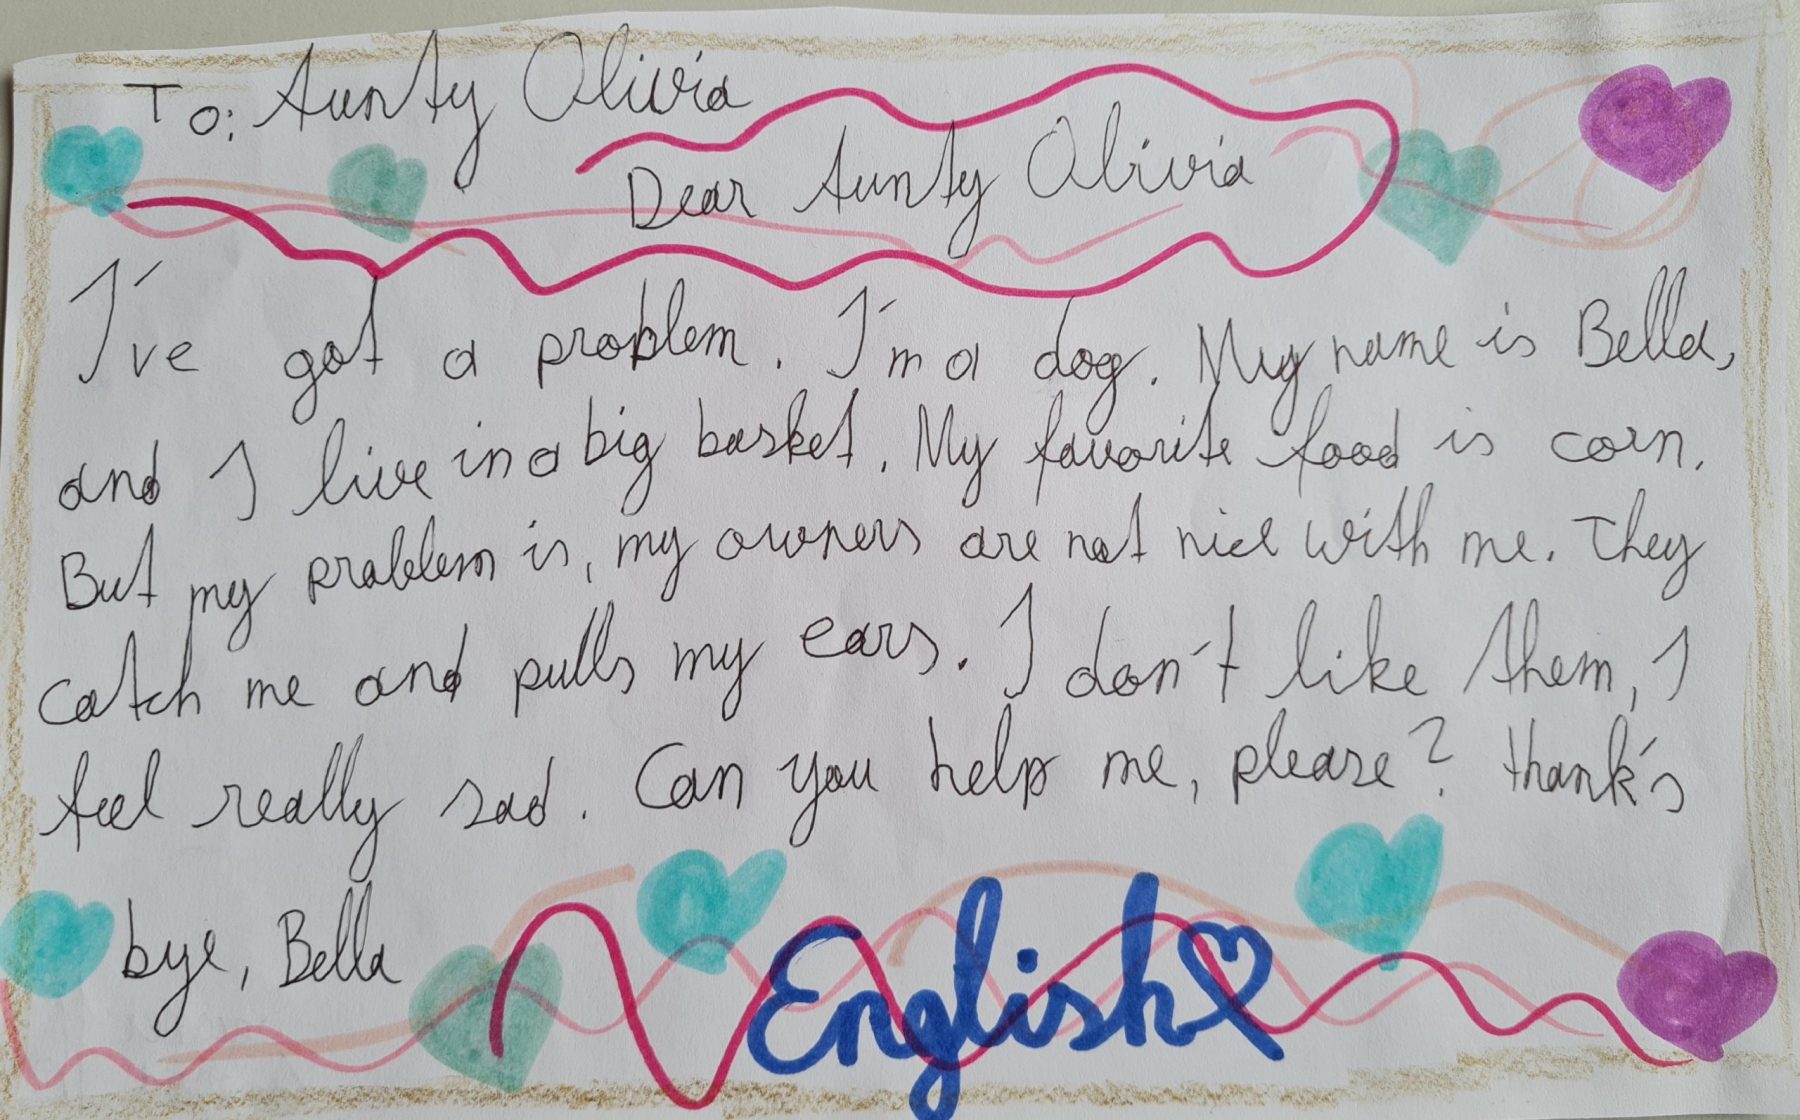 To: Aunty Olivia
Dear Aunty Olivia
I've got a problem. I'm a dog. My name is Bella,
and I live in a big basket. My favorite food is corn.
But my problem is, my owners are not nice with me. They
catch me and pulls my ears. I don't like them, I
feel really sad. Can you help me, please? thank's
bye, Bella
English